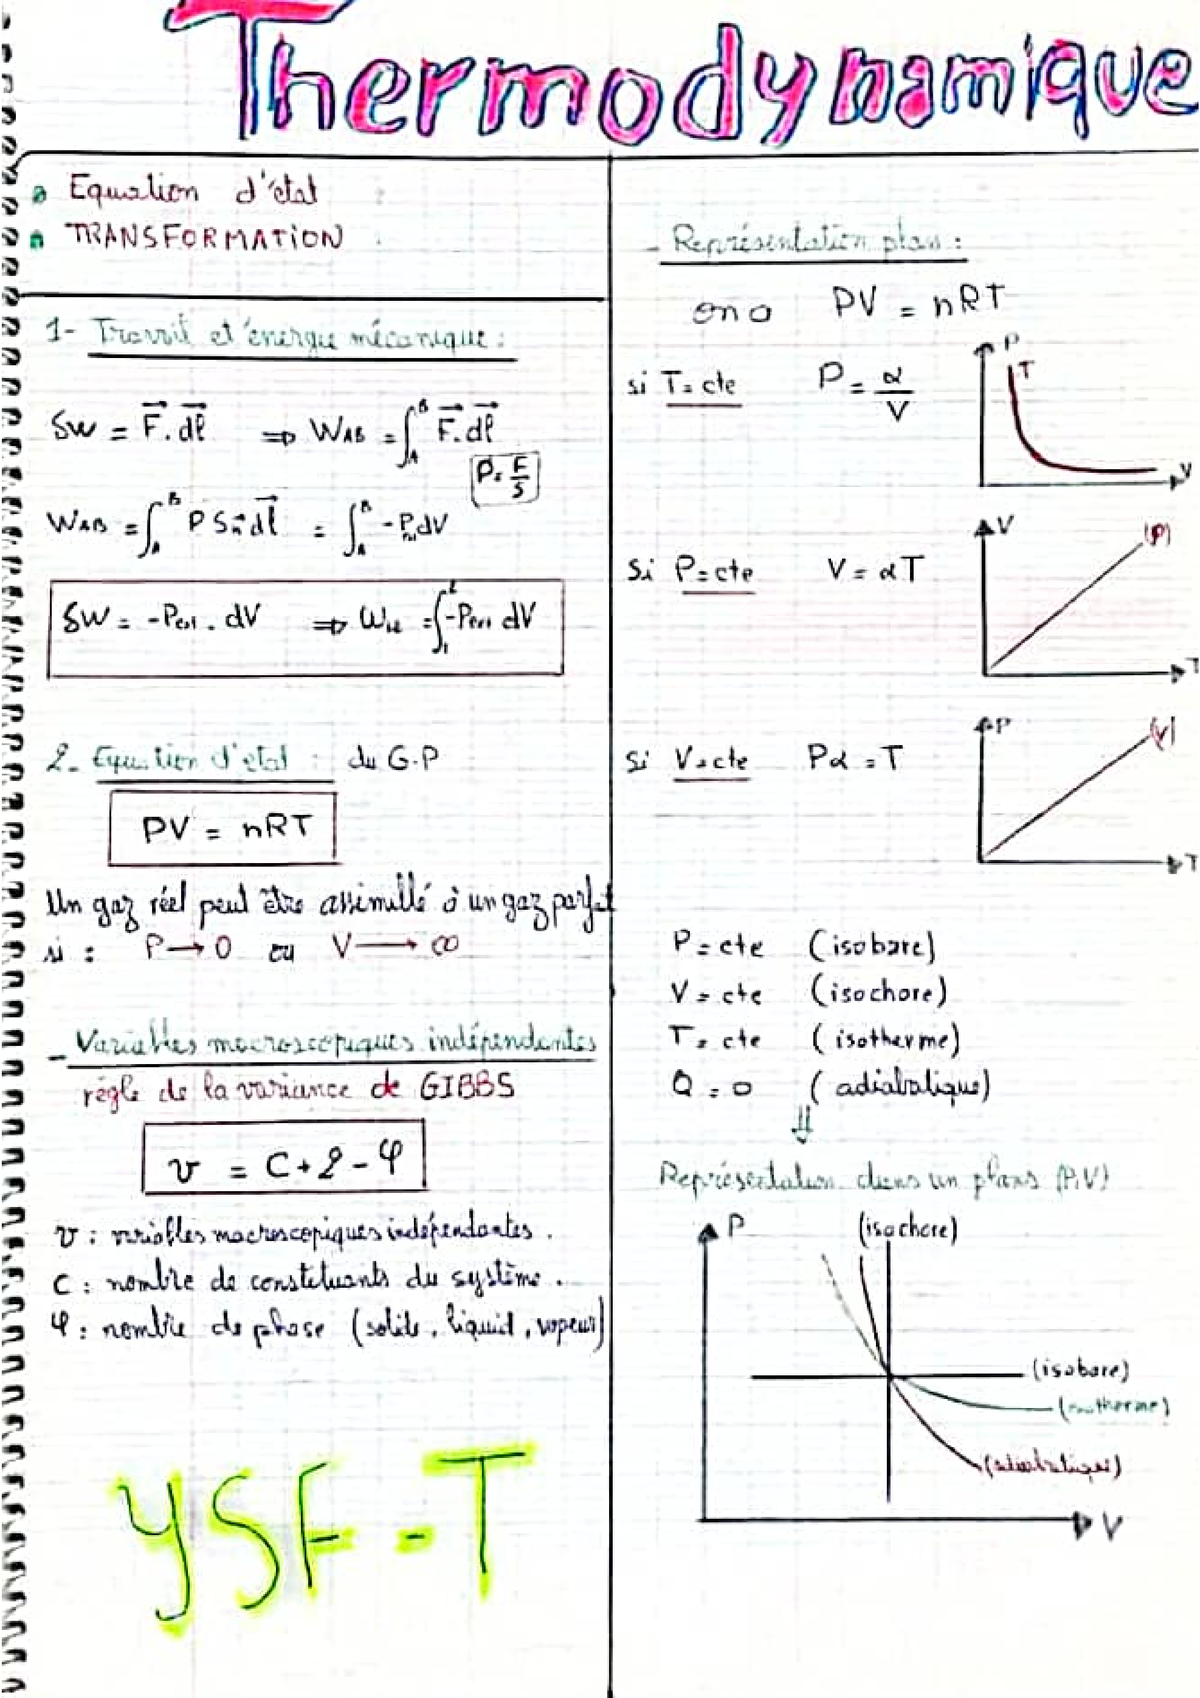 Thermodynamique
Equation d'état :
TRANSFORMATION :
1- Travail et énergie mécanique :
δW = F⃗.dl⃗ ⇒ W_AB = ∫_A^B F⃗.dl⃗
P = F/S
W_AB = ∫_A^B P S n⃗ dl⃗ = ∫_A^B -P dV
δW = -Pext . dV ⇒ W₁₂ = ∫_1^2 -Pext dV
2- Equation d'etat : du G.P
PV = nRT
Un gaz réel peut être assimillé à un gaz parfait
si : P → 0 ou V → ∞
- Variables macroscopiques indépendantes
régle de la variance de GIBBS
v = C + 2 - φ
v : variables macroscopiques indépendantes .
C : nombre de constituants du système .
φ : nombre de phase (solide, liquid, vapeur)
YSF - T
- Représentation plan :
on a PV = nRT
si T = cte P = α/V
P
T
V
Si P = cte V = αT
V
(P)
T
Si V = cte Pα = T
P
(V)
T
P = cte (isobare)
V = cte (isochore)
T = cte (isotherme)
Q = 0 (adiabatique)
⇓
Représentation dans un plans (P,V)
P
(isochore)
(isobare)
(isotherme)
(adiabatique)
V